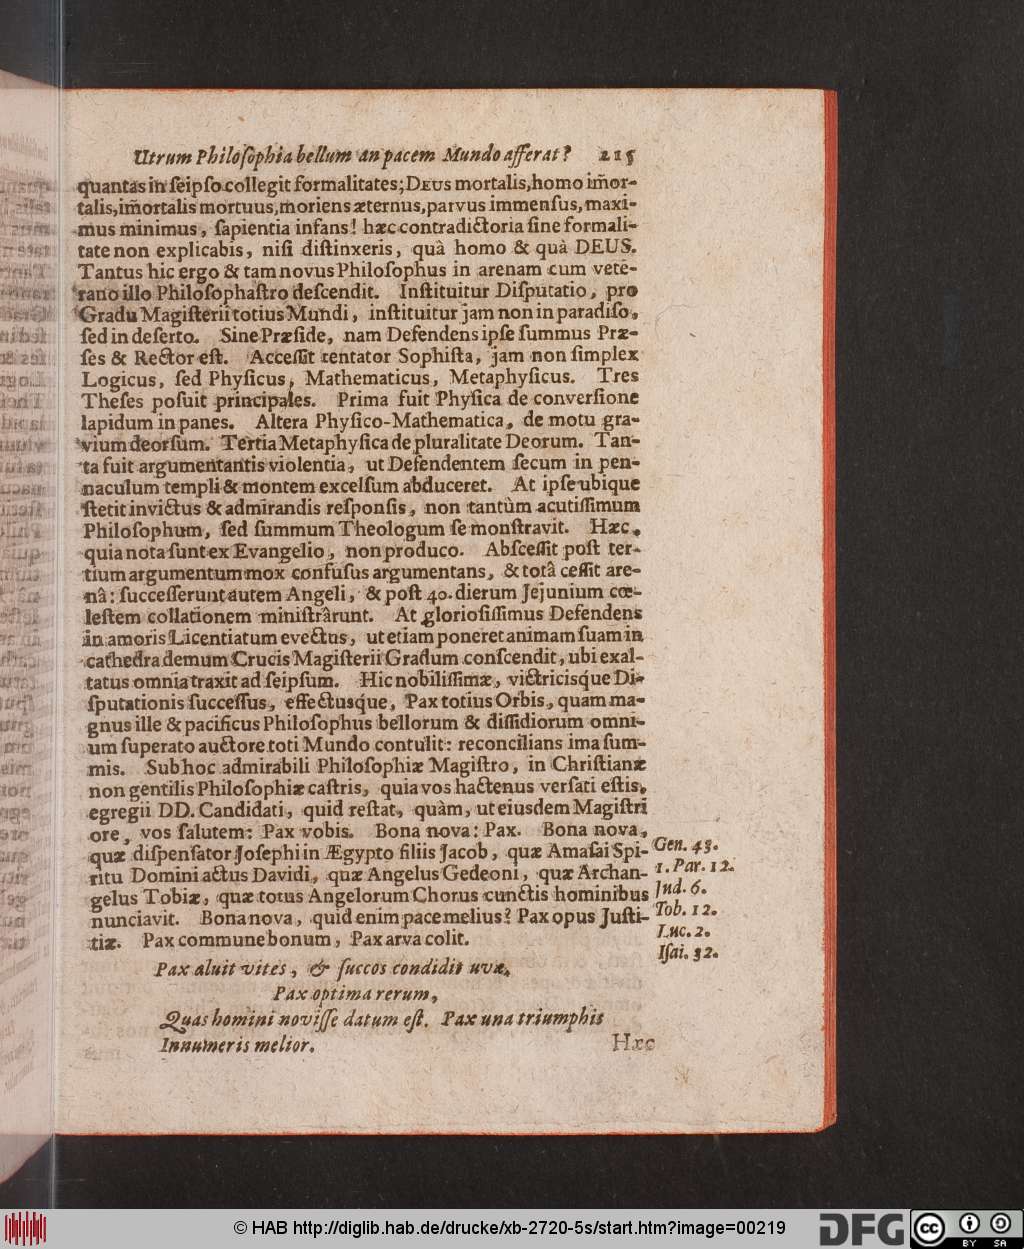 Utrum Philoſophia bellum an pacem Mundo afferat? 215
quantas in ſeipſo collegit formalitates; DEUS mortalis, homo im̃or-
talis, im̃ortalis mortuus, moriens æternus, parvus immenſus, maxi-
mus minimus, ſapientia infans! hæc contradictoria ſine formali-
tate non explicabis, niſi diſtinxeris, quà homo & quà DEUS.
Tantus hic ergo & tam novus Philoſophus in arenam cum vete-
rano illo Philoſophaſtro deſcendit. Inſtituitur Diſputatio, pro
Gradu Magiſterii totius Mundi, inſtituitur jam non in paradiſo,
ſed in deſerto. Sine Præſide, nam Defendens ipſe ſummus Præ-
ſes & Rector eſt. Acceſſit tentator Sophiſta, jam non ſimplex
Logicus, ſed Phyſicus, Mathematicus, Metaphyſicus. Tres
Theſes poſuit principales. Prima fuit Phyſica de converſione
lapidum in panes. Altera Phyſico-Mathematica, de motu gra-
vium deorſum. Tertia Metaphyſica de pluralitate Deorum. Tan-
ta fuit argumentantis violentia, ut Defendentem ſecum in pen-
naculum templi & montem excelſum abduceret. At ipſe ubique
ſtetit invictus & admirandis reſponſis, non tantùm acutiſſimum
Philoſophum, ſed ſummum Theologum ſe monſtravit. Hæc,
quia nota ſunt ex Evangelio, non produco. Abſceſſit poſt ter-
tium argumentum mox confuſus argumentans, & totâ ceſſit are-
nâ: ſucceſſerunt autem Angeli, & poſt 40. dierum Jejunium cœ-
leſtem collationem miniſtrârunt. At glorioſiſſimus Defendens
in amoris Licentiatum evectus, ut etiam poneret animam ſuam in
cathedra demum Crucis Magiſterii Gradum conſcendit, ubi exal-
tatus omnia traxit ad ſeipſum. Hic nobiliſſimæ, victricisque Di-
ſputationis ſucceſſus, effectusque, Pax totius Orbis, quam ma-
gnus ille & pacificus Philoſophus bellorum & diſſidiorum omni-
um ſuperato auctore toti Mundo contulit: reconcilians ima ſum-
mis. Sub hoc admirabili Philoſophiæ Magiſtro, in Chriſtianæ
non gentilis Philoſophiæ caſtris, quia vos hactenus verſati eſtis,
egregii DD. Candidati, quid reſtat, quàm, ut eiusdem Magiſtri
ore, vos ſalutem: Pax vobis. Bona nova: Pax. Bona nova,
quæ diſpenſator Joſephi in Ægypto filiis Jacob, quæ Amaſai Spi- Gen. 43.
ritu Domini actus Davidi, quæ Angelus Gedeoni, quæ Archan- 1. Par. 12.
gelus Tobiæ, quæ totus Angelorum Chorus cunctis hominibus Jud. 6.
nunciavit. Bona nova, quid enim pace melius? Pax opus Juſti- Tob. 12.
tiæ. Pax commune bonum, Pax arva colit. Luc. 2.
Iſai. 32.
Pax aluit vites, & ſuccos condidit uvæ,
Pax optima rerum,
Quas homini noviſſe datum eſt. Pax una triumphis
Innumeris melior. Hæc
© HAB http://diglib.hab.de/drucke/xb-2720-5s/start.htm?image=00219
DFG
cc BY SA